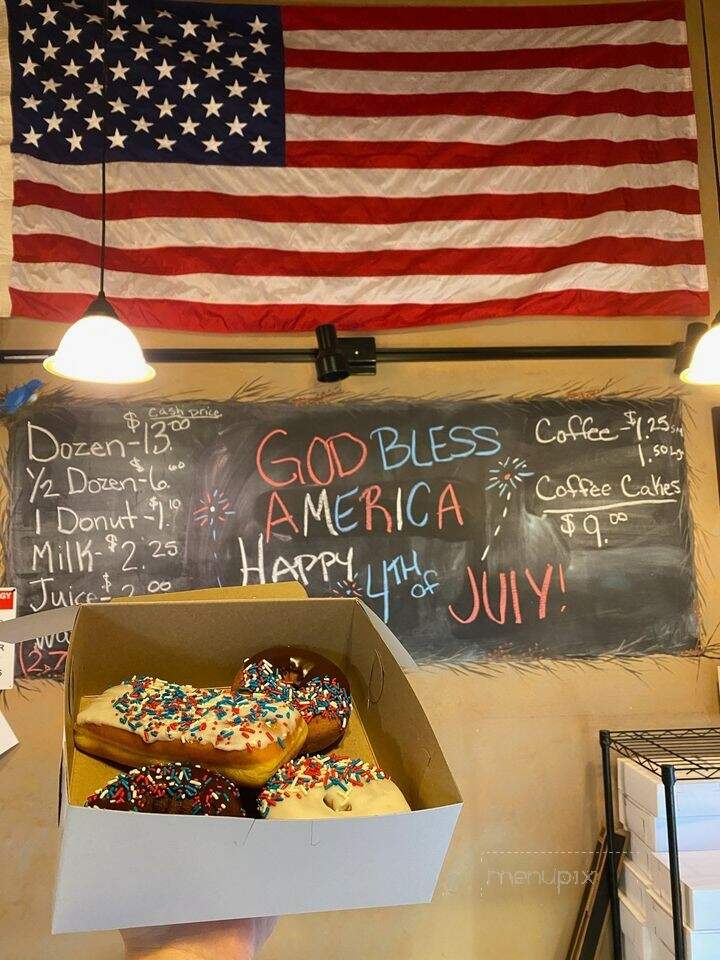 $ Cash price
Dozen-13.00
½ Dozen-$6.60
1 Donut-$1.10
Milk-$2.25
Juice-$2.00
GOD BLESS
AMERICA
HAPPY
4TH of JUlY!
Coffee-$1.25 sm
1.50 Lg
Coffee Cakes
$9.00
menupix